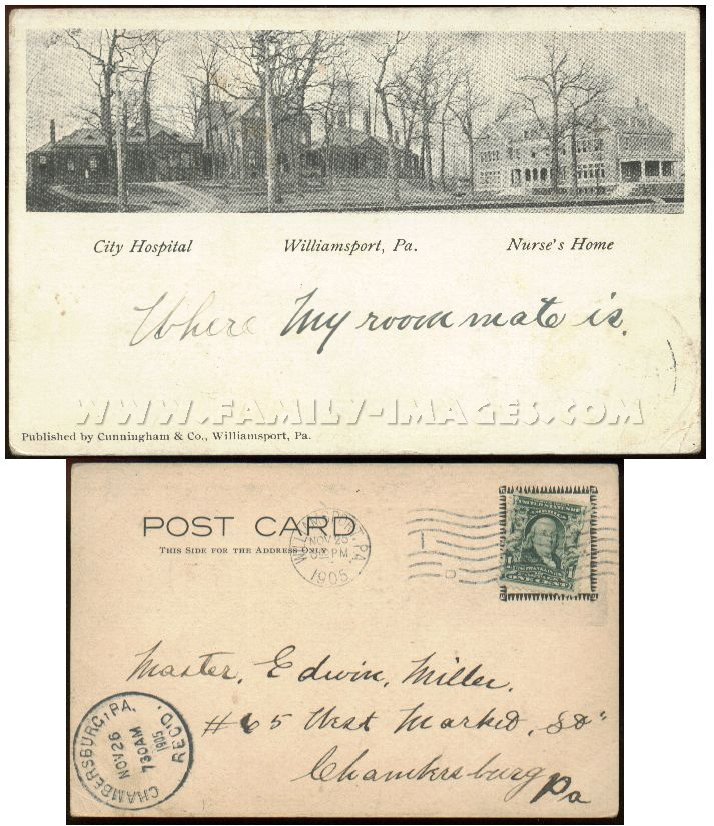 City Hospital Williamsport, Pa. Nurse's Home
Where My roommate is.
WWW.FAMILY-IMAGES.COM
Published by Cunningham & Co., Williamsport, Pa.
POST CARD
THIS SIDE FOR THE ADDRESS ONLY
WILLIAMSPORT, PA.
NOV 25
PM
1905
UNITED STATES OF AMERICA
ONE CENT
Master, Edwin, Miller,
#65 West Market, St"
Chambersburg
Pa
CHAMBERSBURG, PA.
NOV 26
730AM
1905
REC'D.